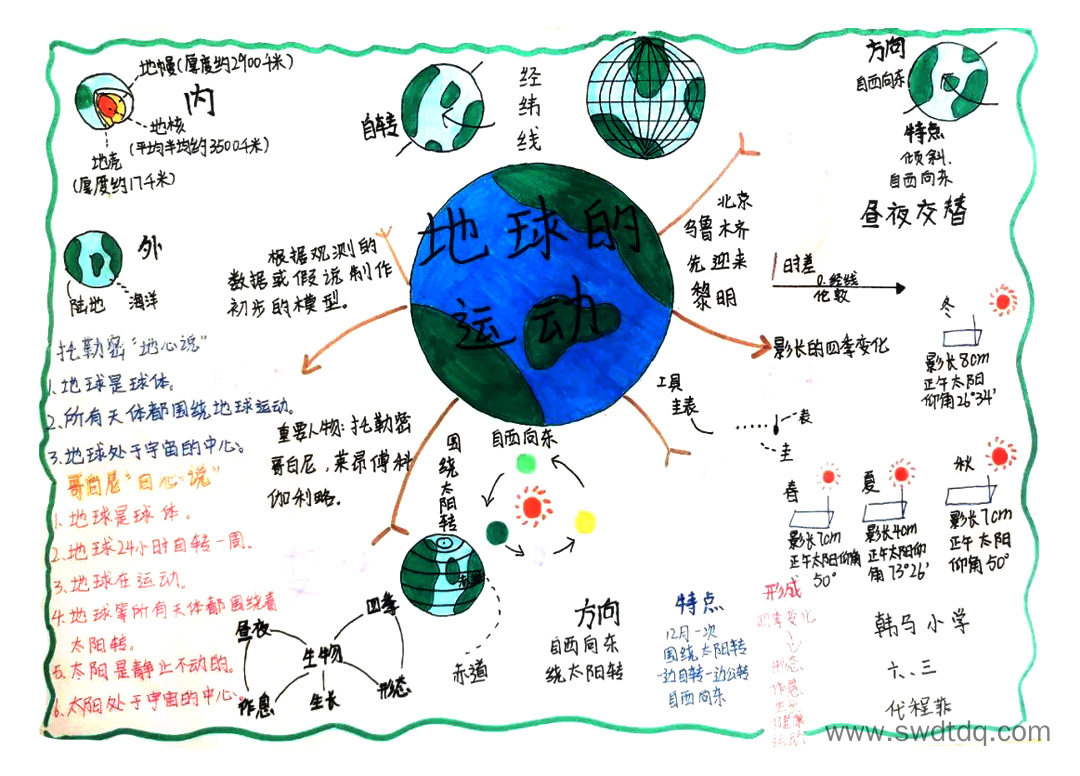 地幔(厚度约2900千米)
内
地核
(平均半均约3500千米)
地壳
(厚度约17千米)
外
陆地
海洋
自转
经纬线
方向
自西向东
特点
倾斜.
自西向东
昼夜交替
地球的
运动
根据观测的
数据或假说制作
初步的模型。
北京
乌鲁木齐
先迎来
黎明
时差
0.经线
化较
影长的四季变化
冬
影长80cm
正午太阳
仰角26°34′
工具
圭表
表
圭
春
影长7cm
正午太阳仰角
50°
夏
影长4cm
正午太阳仰
角73°26′
秋
影长7cm
正午太阳
仰角50°
托勒密“地心说”
1.地球是球体。
2.所有天体都围绕地球运动。
3.地球处于宇宙的中心。
哥白尼“日心说”
1.地球是球体.
2.地球24小时自转一周.
3.地球在运动.
4.地球等所有天体都围绕着
太阳转.
5.太阳是静止不动的.
6.太阳处于宇宙的中心.
重要人物:托勒密
哥白尼,莱昂傅科
伽利略.
围绕太阳转
自西向东
赤道
昼夜
四季
生物
作息
生长
形态
方向
自西向东
绕太阳转
特点
12月一次
围绕太阳转
一边自转一边公转
自西向东
形成
四季变化
形态
作息
韩马小学
六、三
代程菲
www.swdtdq.com